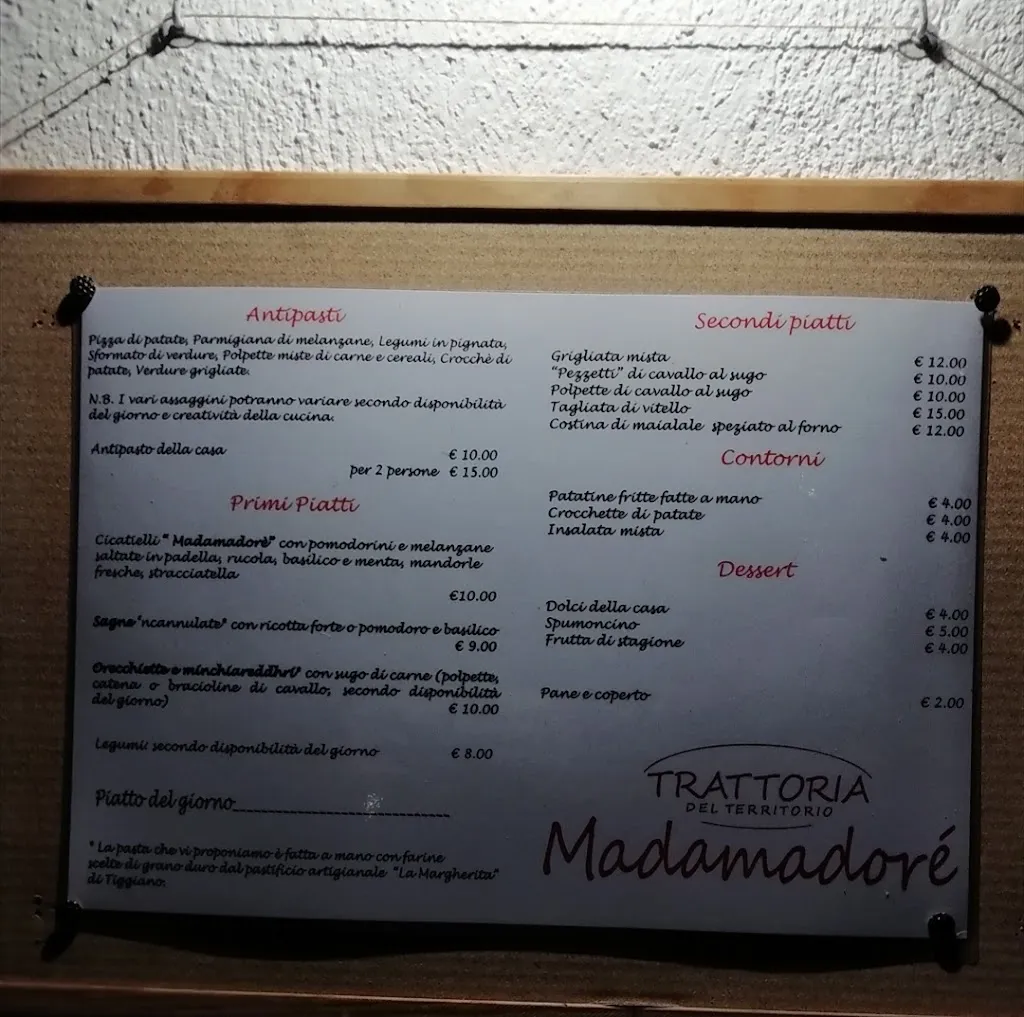 Antipasti
Pizza di patate, Parmigiana di melanzane, Legumi in pignata,
Sformato di verdure, Polpette miste di carne e cereali, Crocchè di
patate, Verdure grigliate.
N.B. I vari assaggini potranno variare secondo disponibilità
del giorno e creatività della cucina.
Antipasto della casa € 10.00
per 2 persone € 15.00
Primi Piatti
Cicatielli “ Madamadorè” con pomodorini e melanzane
saltate in padella, rucola, basilico e menta, mandorle
fresche, stracciatella
€10.00
Sagne ‘ncannulate* con ricotta forte o pomodoro e basilico
€ 9.00
Orecchiette e minchiareddhri* con sugo di carne (polpette,
catena o bracioline di cavallo, secondo disponibilità
del giorno)
€ 10.00
Legumi: secondo disponibilità del giorno € 8.00
Piatto del giorno
* La pasta che vi proponiamo è fatta a mano con farine
scelte di grano duro dal pastificio artigianale “La Margherita”
di Tiggiano.
Secondi piatti
Grigliata mista € 12.00
“Pezzetti” di cavallo al sugo € 10.00
Polpette di cavallo al sugo € 10.00
Tagliata di vitello € 15.00
Costina di maialale speziato al forno € 12.00
Contorni
Patatine fritte fatte a mano € 4.00
Crocchette di patate € 4.00
Insalata mista € 4.00
Dessert
Dolci della casa € 4.00
Spumoncino € 5.00
Frutta di stagione € 4.00
Pane e coperto € 2.00
TRATTORIA
DEL TERRITORIO
Madamadoré